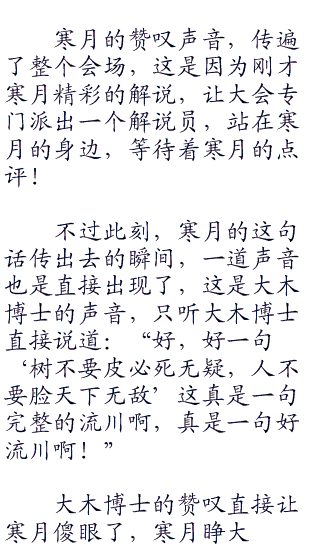 寒月的赞叹声音，传遍
了整个会场，这是因为刚才
寒月精彩的解说，让大会专
门派出一个解说员，站在寒
月的身边，等待着寒月的点
评！
不过此刻，寒月的这句
话传出去的瞬间，一道声音
也是直接出现了，这是大木
博士的声音，只听大木博士
直接说道：“好，好一句
‘树不要皮必死无疑，人不
要脸天下无敌’这真是一句
完整的流川啊，真是一句好
流川啊！”
大木博士的赞叹直接让
寒月傻眼了，寒月睁大